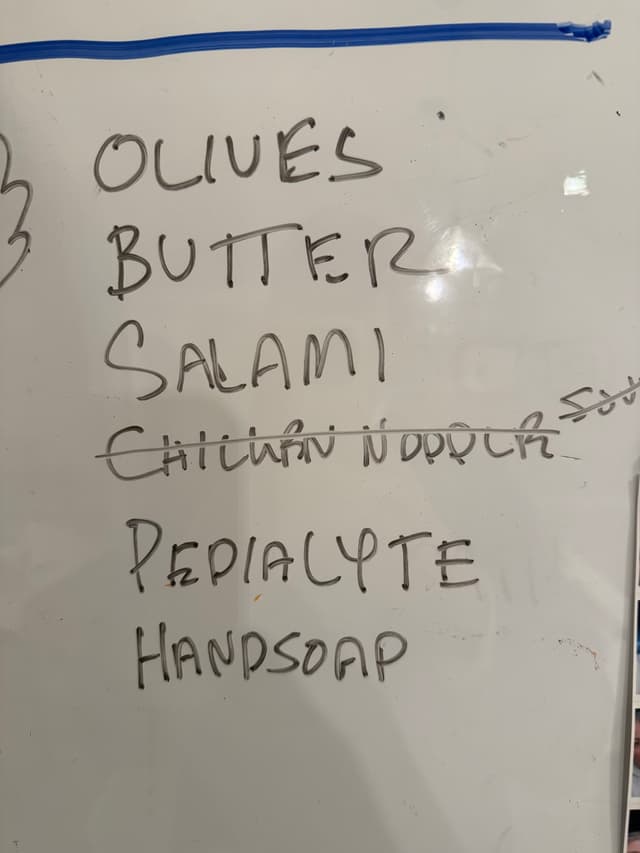 OLIVES
BUTTER
SALAMI
CHICKEN NOODLE
PEDIALYTE
HANDSOAP